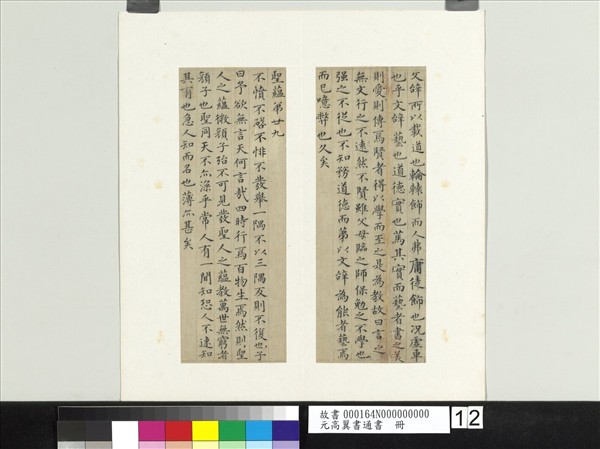 文辭所以載道也輪轅飾而人弗庸徒飾也況虛車
也乎文辭藝也道德實也篤其實而藝者書之美
則愛則傳焉賢者得以學而至之是為教故曰言之
無文行之不遠然不賢雖父母臨之師保勉之不學也
强之不從也不知務道德而第以文辭為能者藝焉
而已噫弊也久矣
聖蘊第廿九
不憤不啓不悱不發舉一隅不以三隅反則不復也子
曰予欲無言天何言哉四時行焉百物生焉然則聖
人之蘊微顏子殆不可見發聖人之蘊教萬世無窮者
顏子也聖同天不亦深乎常人有一聞知恐人不速知
其有也急人知而名也薄亦甚矣
故書 000164N000000000
元高翼書通書 冊
12